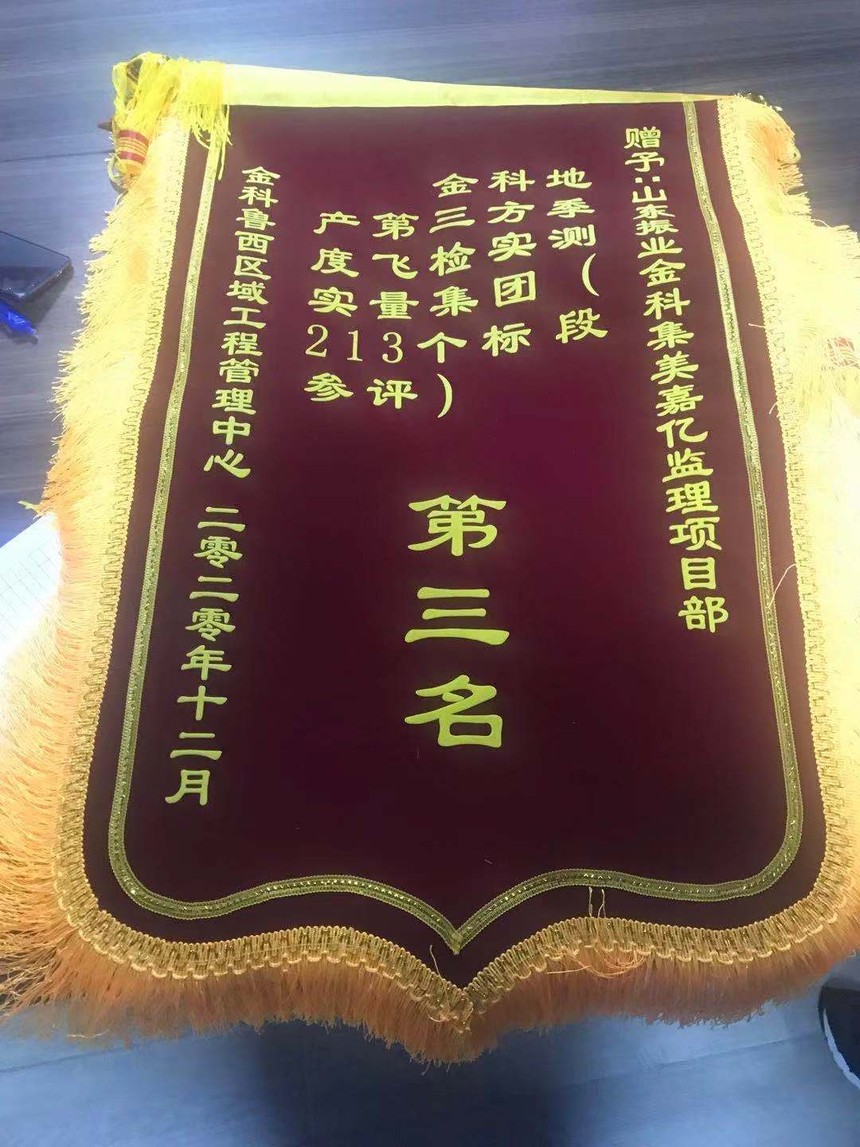 赠予:山东振业金科集美嘉亿监理项目部
金科地
产第三方季
度飞检实测
实量集团(
213个标段
参评)
第三名
金科鲁西区域工程管理中心 二零二零年十二月